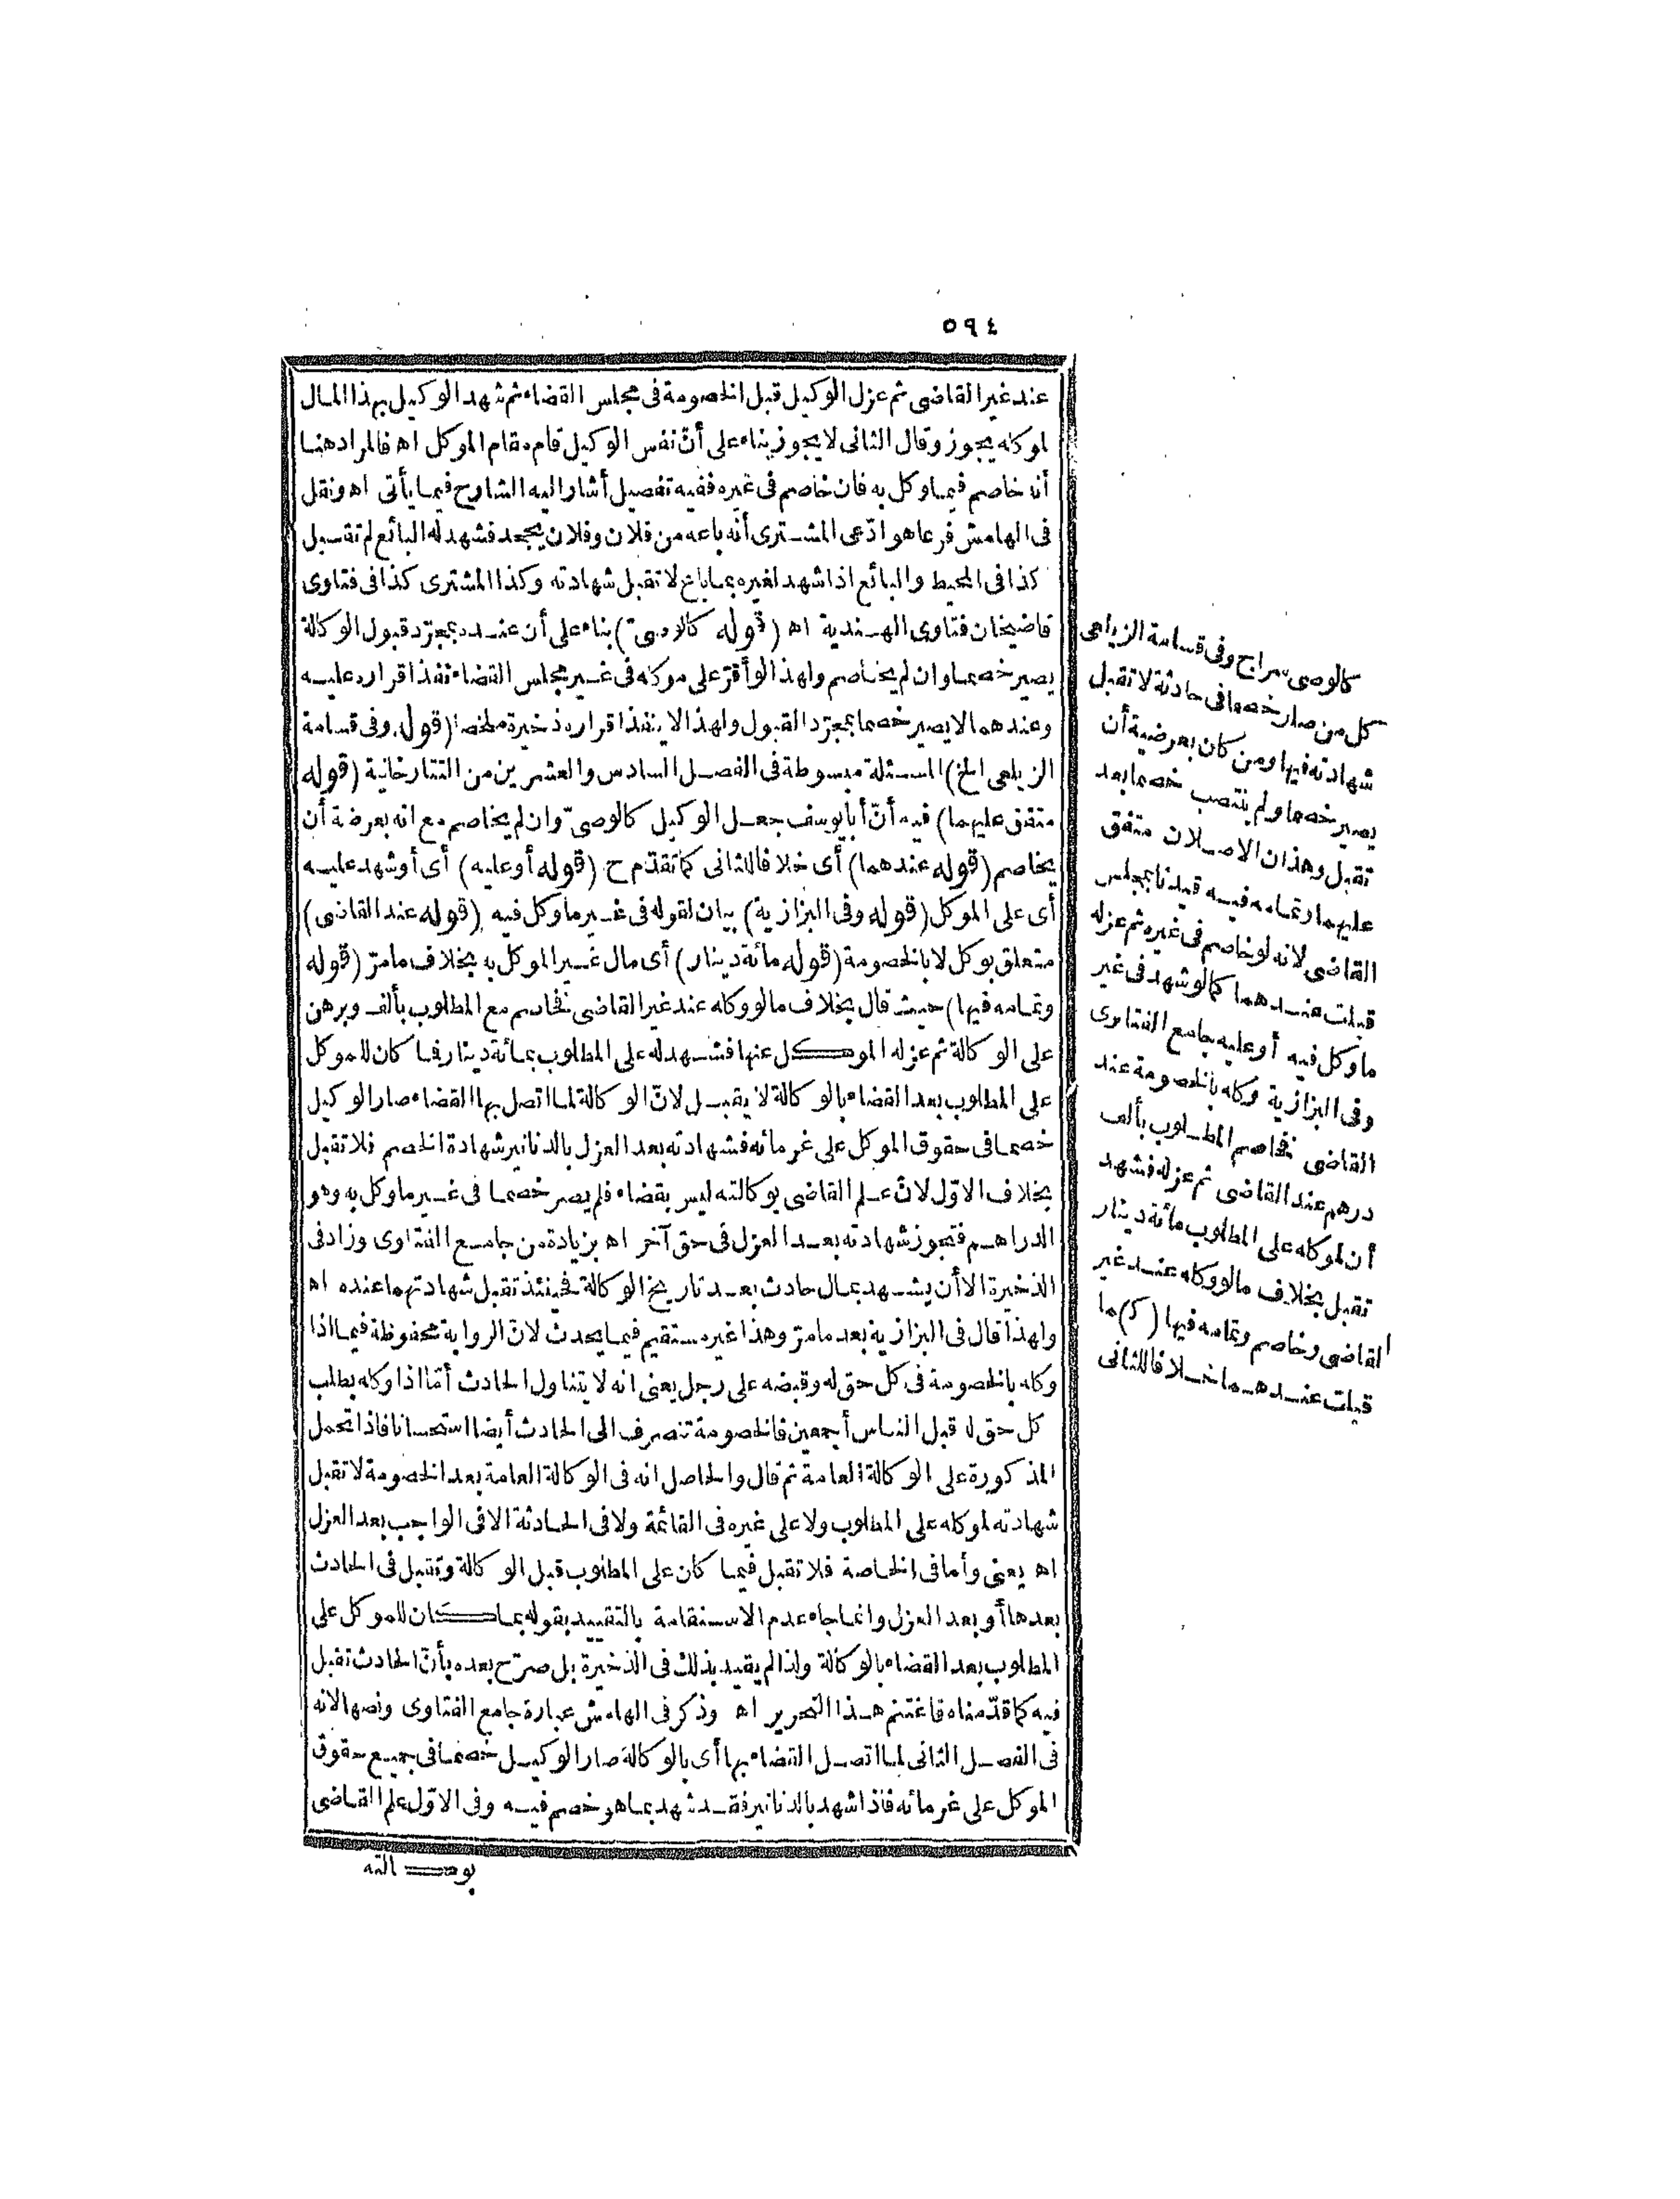 ٥٩٤
عند غير القاضى ثم عزل الوكيل قبل الخصومة فى مجلس القضاء ثم شهد الوكيل بهذا المال
لموكله يجوز وقال الثانى لا يجوز بناء على أنّ نفس الوكيل قام مقام الموكل اه فالمراد هنا
أنه خاصم فيما وكل به فان خاصم فى غيره ففيه تفصيل أشار اليه الشارح فيما يأتى اه ونقل
فى الهامش فرعا هو ادّعى المشترى أنه باعه من فلان وفلان يجحد فشهد له البائع لم تقبل
كذا فى المحيط والبائع اذا شهد لغيره بما باع لا تقبل شهادته وكذا المشترى كذا فى فتاوى
قاضيخان فتاوى الهندية اه (قوله كالوصىّ) بناء على أن عنده بمجرّد قبول الوكالة
يصير خصما وان لم يخاصم ولهذا لو أقرّ على موكله فى غير مجلس القضاء نفذ اقراره عليه
وعندهما لا يصير خصما بمجرّد القبول ولهذا لا ينفذ اقراره ذخيرة ملخصا (قوله وفى قسامة
الزيلعى الخ) المسئلة مبسوطة فى الفصل السادس والعشرين من التتارخانية (قوله
متفق عليهما) فيه أنّ أبا يوسف جعل الوكيل كالوصىّ وان لم يخاصم مع انه بعرضة أن
يخاصم (قوله عندهما) أى خلافا للثانى كما تقدّم ح (قوله أو عليه) أى أو شهد عليه
أى على الموكل (قوله وفى البزازية) بيان لقوله فى غير ما وكل فيه (قوله عند القاضى)
متعلق بوكل لا بالخصومة (قوله مائة دينار) أى مال غير الموكل به بخلاف ما مرّ (قوله
وتمامه فيها) حيث قال بخلاف ما لو وكله عند غير القاضى فخاصم مع المطلوب بألف وبرهن
على الوكالة ثم عزله الموكل عنها فشهد له على المطلوب بمائة دينار فما كان للموكل
على المطلوب بعد القضاء بالوكالة لا يقبل لانّ الوكالة لما اتصل بها القضاء صار الوكيل
خصما فى حقوق الموكل على غرمائه فشهادته بعد العزل بالدنانير شهادة الخصم فلا تقبل
بخلاف الاوّل لانّ علم القاضى بوكالته ليس بقضاء فلم يصر خصما فى غير ما وكل به وهو
الدراهم فتجوز شهادته بعد العزل فى حق آخر اه بزيادة من جامع الفتاوى وزاد فى
الذخيرة الا أن يشهد بمال حادث بعد تاريخ الوكالة فحينئذ تقبل شهادتهما عنده اه
ولهذا قال فى البزازية بعد ما مرّ وهذا غير مستقيم فيما يحدث لانّ الرواية محفوظة فيما اذا
وكله بالخصومة فى كل حق له وقبضه على رجل يعنى انه لا يتناول الحادث أمّا اذا وكله بطلب
كل حق له قبل الناس أجمعين فالخصومة تنصرف الى الحادث أيضا استحسانا فاذا تحمل
المذكورة على الوكالة العامة ثم قال والحاصل انه فى الوكالة العامة بعد الخصومة لا تقبل
شهادته لموكله على المطلوب ولا على غيره فى القائمة ولا فى الحادثة الا فى الواجب بعد العزل
اه يعنى وأما فى الخاصة فلا تقبل فيما كان على المطلوب قبل الوكالة وتقبل فى الحادث
بعدها أو بعد العزل وانما جاء عدم الاستقامة بالتقييد بقوله بما كان للموكل على
المطلوب بعد القضاء بالوكالة ولذا لم يقيد بذلك فى الذخيرة بل صرّح بعده بأنّ الحادث تقبل
فيه كما قدّمناه فاغتنم هذا التحرير اه وذكر فى الهامش عبارة جامع الفتاوى ونصها لانه
فى الفصل الثانى لما اتصل القضاء بها أى بالوكالة صار الوكيل خصما فى جميع حقوق
الموكل على غرمائه فاذا شهد بالدنانير فقد شهد بما هو خصم فيه وفى الاوّل علم القاضى
بوكالته
كالوصى سراج وفى قسامة الزيلعى
كل من صار خصما فى حادثة لا تقبل
شهادته فيها ومن كان بعرضية أن
يصير خصما ولم ينتصب خصما بعد
تقبل وهذان الاصلان متفق
عليهما وتمامه فيه قيدنا بمجلس
القاضى لانه لو خاصم فى غيره ثم عزله
قبلت عندهما كما لو شهد فى غير
ما وكل فيه أو عليه جامع الفتاوى
وفى البزازية وكله بالخصومة عند
القاضى فخاصم المطلوب بألف
درهم عند القاضى ثم عزله فشهد
أن لموكله على المطلوب مائة دينار
تقبل بخلاف ما لو وكله عند غير
القاضى وخاصم وتمامه فيها (كما)
قبلت عندهما خلافا للثانى